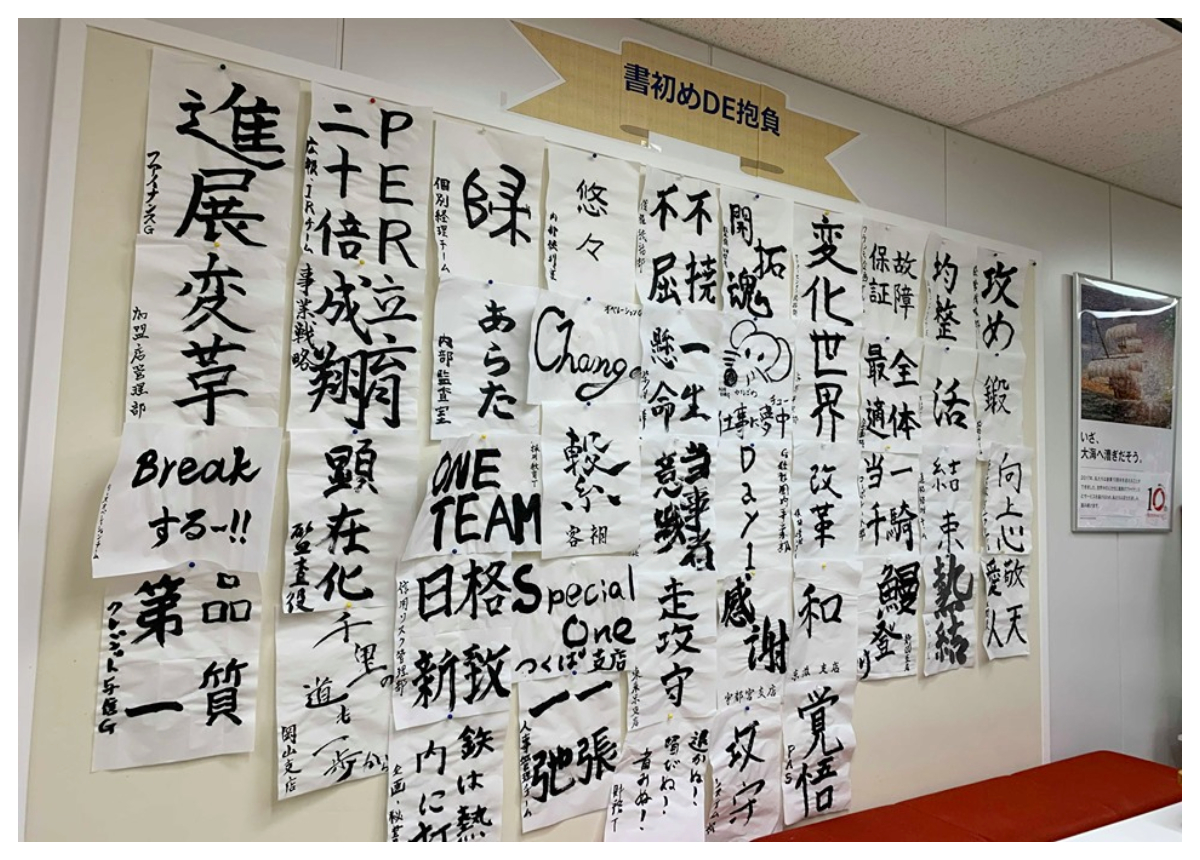 書初めDE抱負
進展
ファイナンスG
PER
二十倍
広報・IRチーム
縁
個別経理チーム
悠々
不撓
不屈
開拓
魂
変化
故障
保証
均整
攻め
変革
加盟店管理部
立育
成翔
事業戦略
あらた
内部監査室
Change
オペレーションG
一生
懸命
仕事に夢中
世界
全体
最適
活
鍛
Break
する~!!
顕在化
監査役
ONE
TEAM
繋
当事者
意識
Day1
改革
一騎
当千
結束
向上心
品質
第一
クレジット与信G
千里の
道も
一歩から
岡山支店
格致
日新
信用リスク管理部
Special
One
つくば支店
走攻守
感謝
宇都宮支店
和
鰻登り
熱結
敬天
愛人
鉄は熱
内に打
企画・秘書
一張
一弛
人事管理チーム
退かぬ!
媚びぬ!
省みぬ!
財務T
攻守
システム部
覚悟
PAS
いざ、
大海へ漕ぎだそう。
10